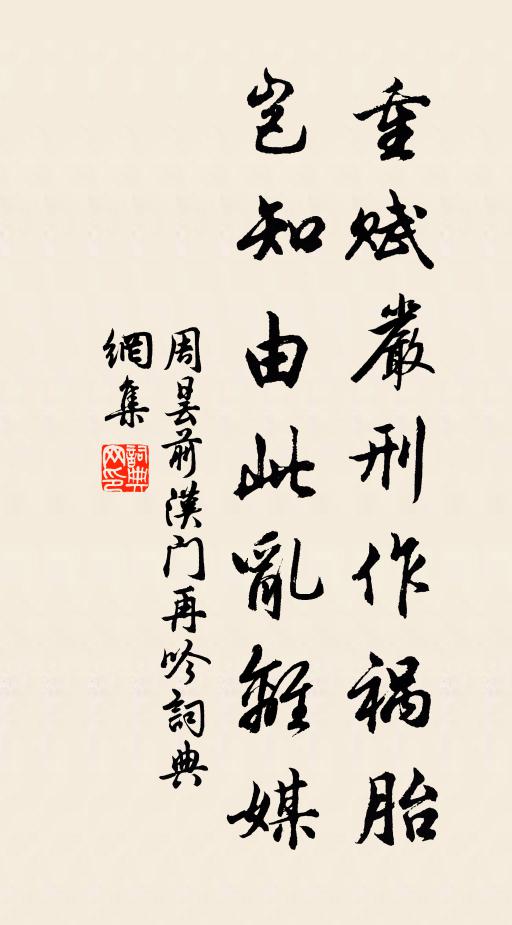 重賦嚴刑作禍胎
豈知由此亂離媒
周曇前漢門再吟詞典
網集
詞典
網印